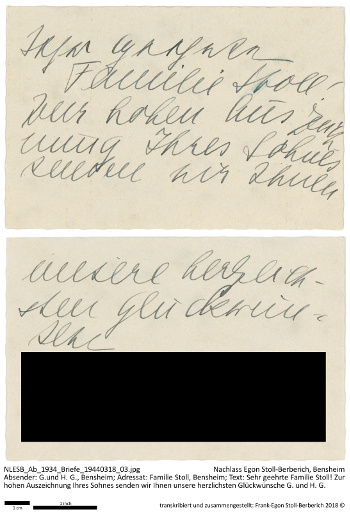 Sehr geehrte
Familie Stoll-
Zur hohen Aus zeich
nung Ihres Sohnes
senden wir Ihnen
unsere herzlich-
sten Glückwün-
sche
NLESB_Ab_1934_Briefe_19440318_03.jpg Nachlass Egon Stoll-Berberich, Bensheim
Absender: G.und H. G., Bensheim; Adressat: Familie Stoll, Bensheim; Text: Sehr geehrte Familie Stoll! Zur
hohen Auszeichnung Ihres Sohnes senden wir Ihnen unsere herzlichsten Glückwünsche G. und H. G.
2 cm 1 inch
transkribiert und zusammengestellt: Frank-Egon Stoll-Berberich 2018 ©